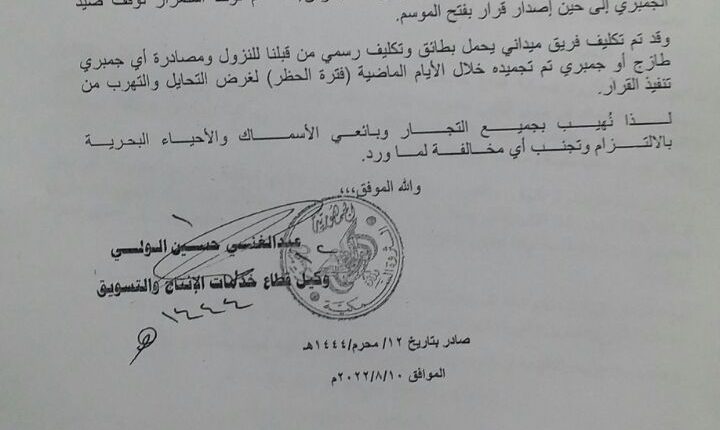 الجمبري إلى حين إصدار قرار بفتح الموسم.
وقد تم تكليف فريق ميداني يحمل بطائق وتكليف رسمي من قبلنا للنزول ومصادرة أي جمبري
طازج أو جمبري تم تجميده خلال الأيام الماضية (فترة الحظر) لغرض التحايل والتهرب من
تنفيذ القرار.
لـــذا نُهيب بجميع التجار وبائعي الأسماك والأحياء البحرية
بالالتزام وتجنب أي مخالفة لما ورد.
والله الموفق,,,
عبدالغني حسين الولي
وكيل قطاع خدمات الإنتاج والتسويق
١٤٤٤
صادر بتاريخ ١٢/ محرم/١٤٤٤هـ
الموافق ٢٠٢٢/٨/١٠م